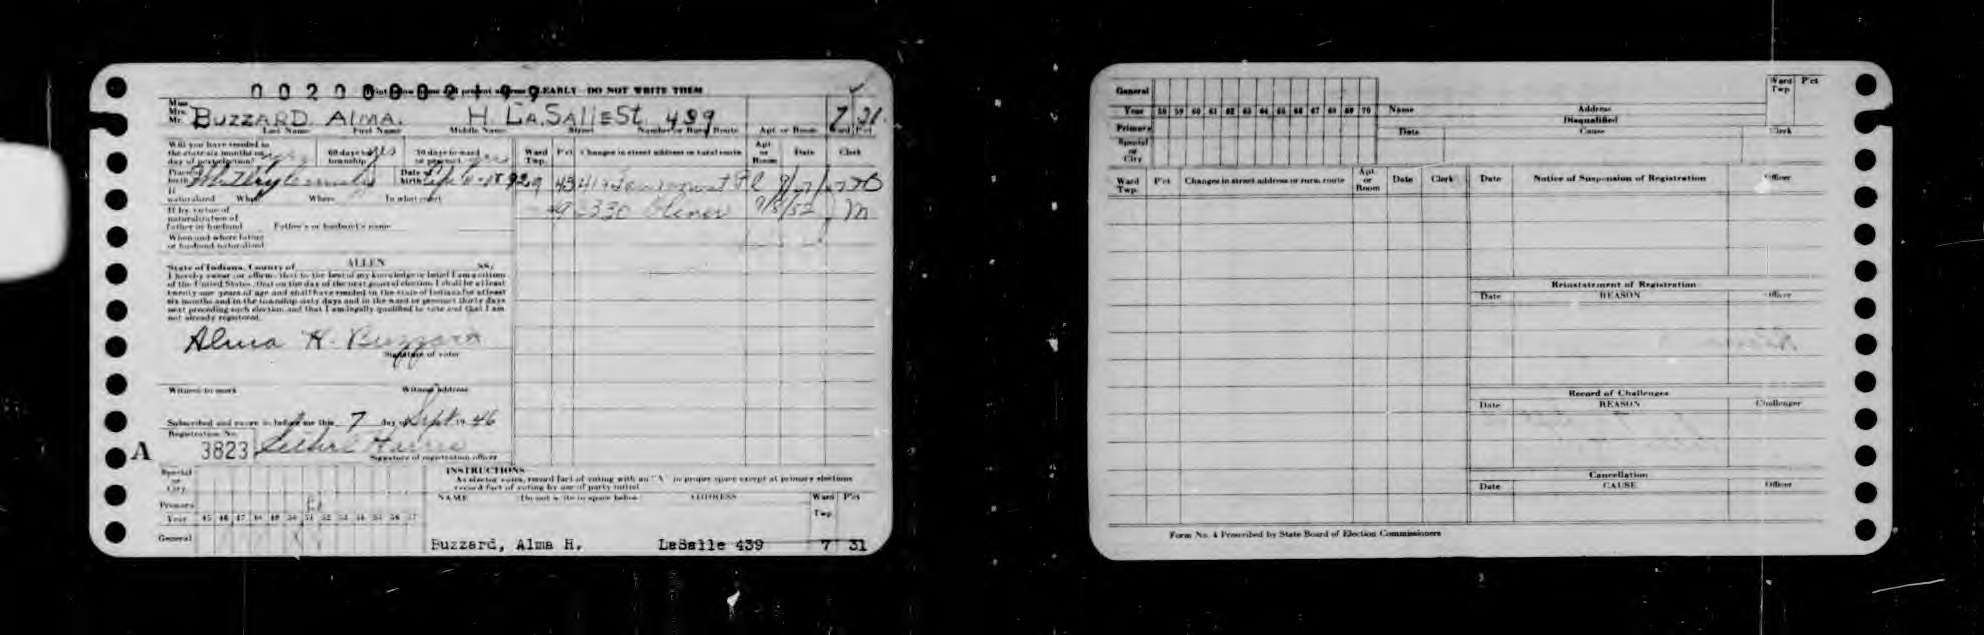 00200002499
Print your name and present address CLEARLY - DO NOT WRITE THEM
Miss
Mrs.
Mr. BUZZARD. ALMA. H. LA.SALLE St. 439 7 31.
Last Name First Name Middle Name Street Number or Rural Route Apt. or Room Ward P'ct
Will you have resided in
the state six months on
day of next election? yes 60 days in township yes 30 days in ward or precinct yes
Ward Twp. P'ct Changes in street address or rural route Apt. or Room Date Clerk
Place of birth Date of birth
If naturalized When Where In what court
330
9/8/52 M
If by virtue of
naturalization of
father or husband Father's or husband's name
When and where father
or husband naturalized
State of Indiana, County of ALLEN SS:
I hereby swear (or affirm) that to the best of my knowledge or belief I am a citizen
of the United States, that on the day of the next general election I shall be at least
twenty-one years of age and shall have resided in the state of Indiana for at least
six months and in the township sixty days and in the ward or precinct thirty days
next preceding such election and that I am legally qualified to vote and that I am
not already registered.
Alma H. Buzzard
Signature of voter
Witness to mark Witness' address
Subscribed and sworn to before me this 7 day of Sept 19 46
Registration No.
A 3823
Signature of registration officer
Special or City
INSTRUCTIONS
As elector votes, record fact of voting with an "X" in proper space except at primary elections
record fact of voting by use of party initial.
Primary
NAME (Do not write in space below) ADDRESS Ward Twp. P'ct
Year 45 46 47 48 49 50 51 52 53 54 55 56 57
General
Buzzard, Alma H. LaSalle 439 7 31
General
Year 58 59 60 61 62 63 64 65 66 67 68 69 70
Primary
Special or City
Name Address Ward Twp. P'ct
Disqualified
Date Cause Clerk
Ward Twp. P'ct Changes in street address or rural route Apt. or Room Date Clerk
Date Notice of Suspension of Registration Officer
Reinstatement of Registration
Date REASON Officer
Record of Challenges
Date REASON Challenger
Cancellation
Date CAUSE Officer
Form No. 4 Prescribed by State Board of Election Commissioners